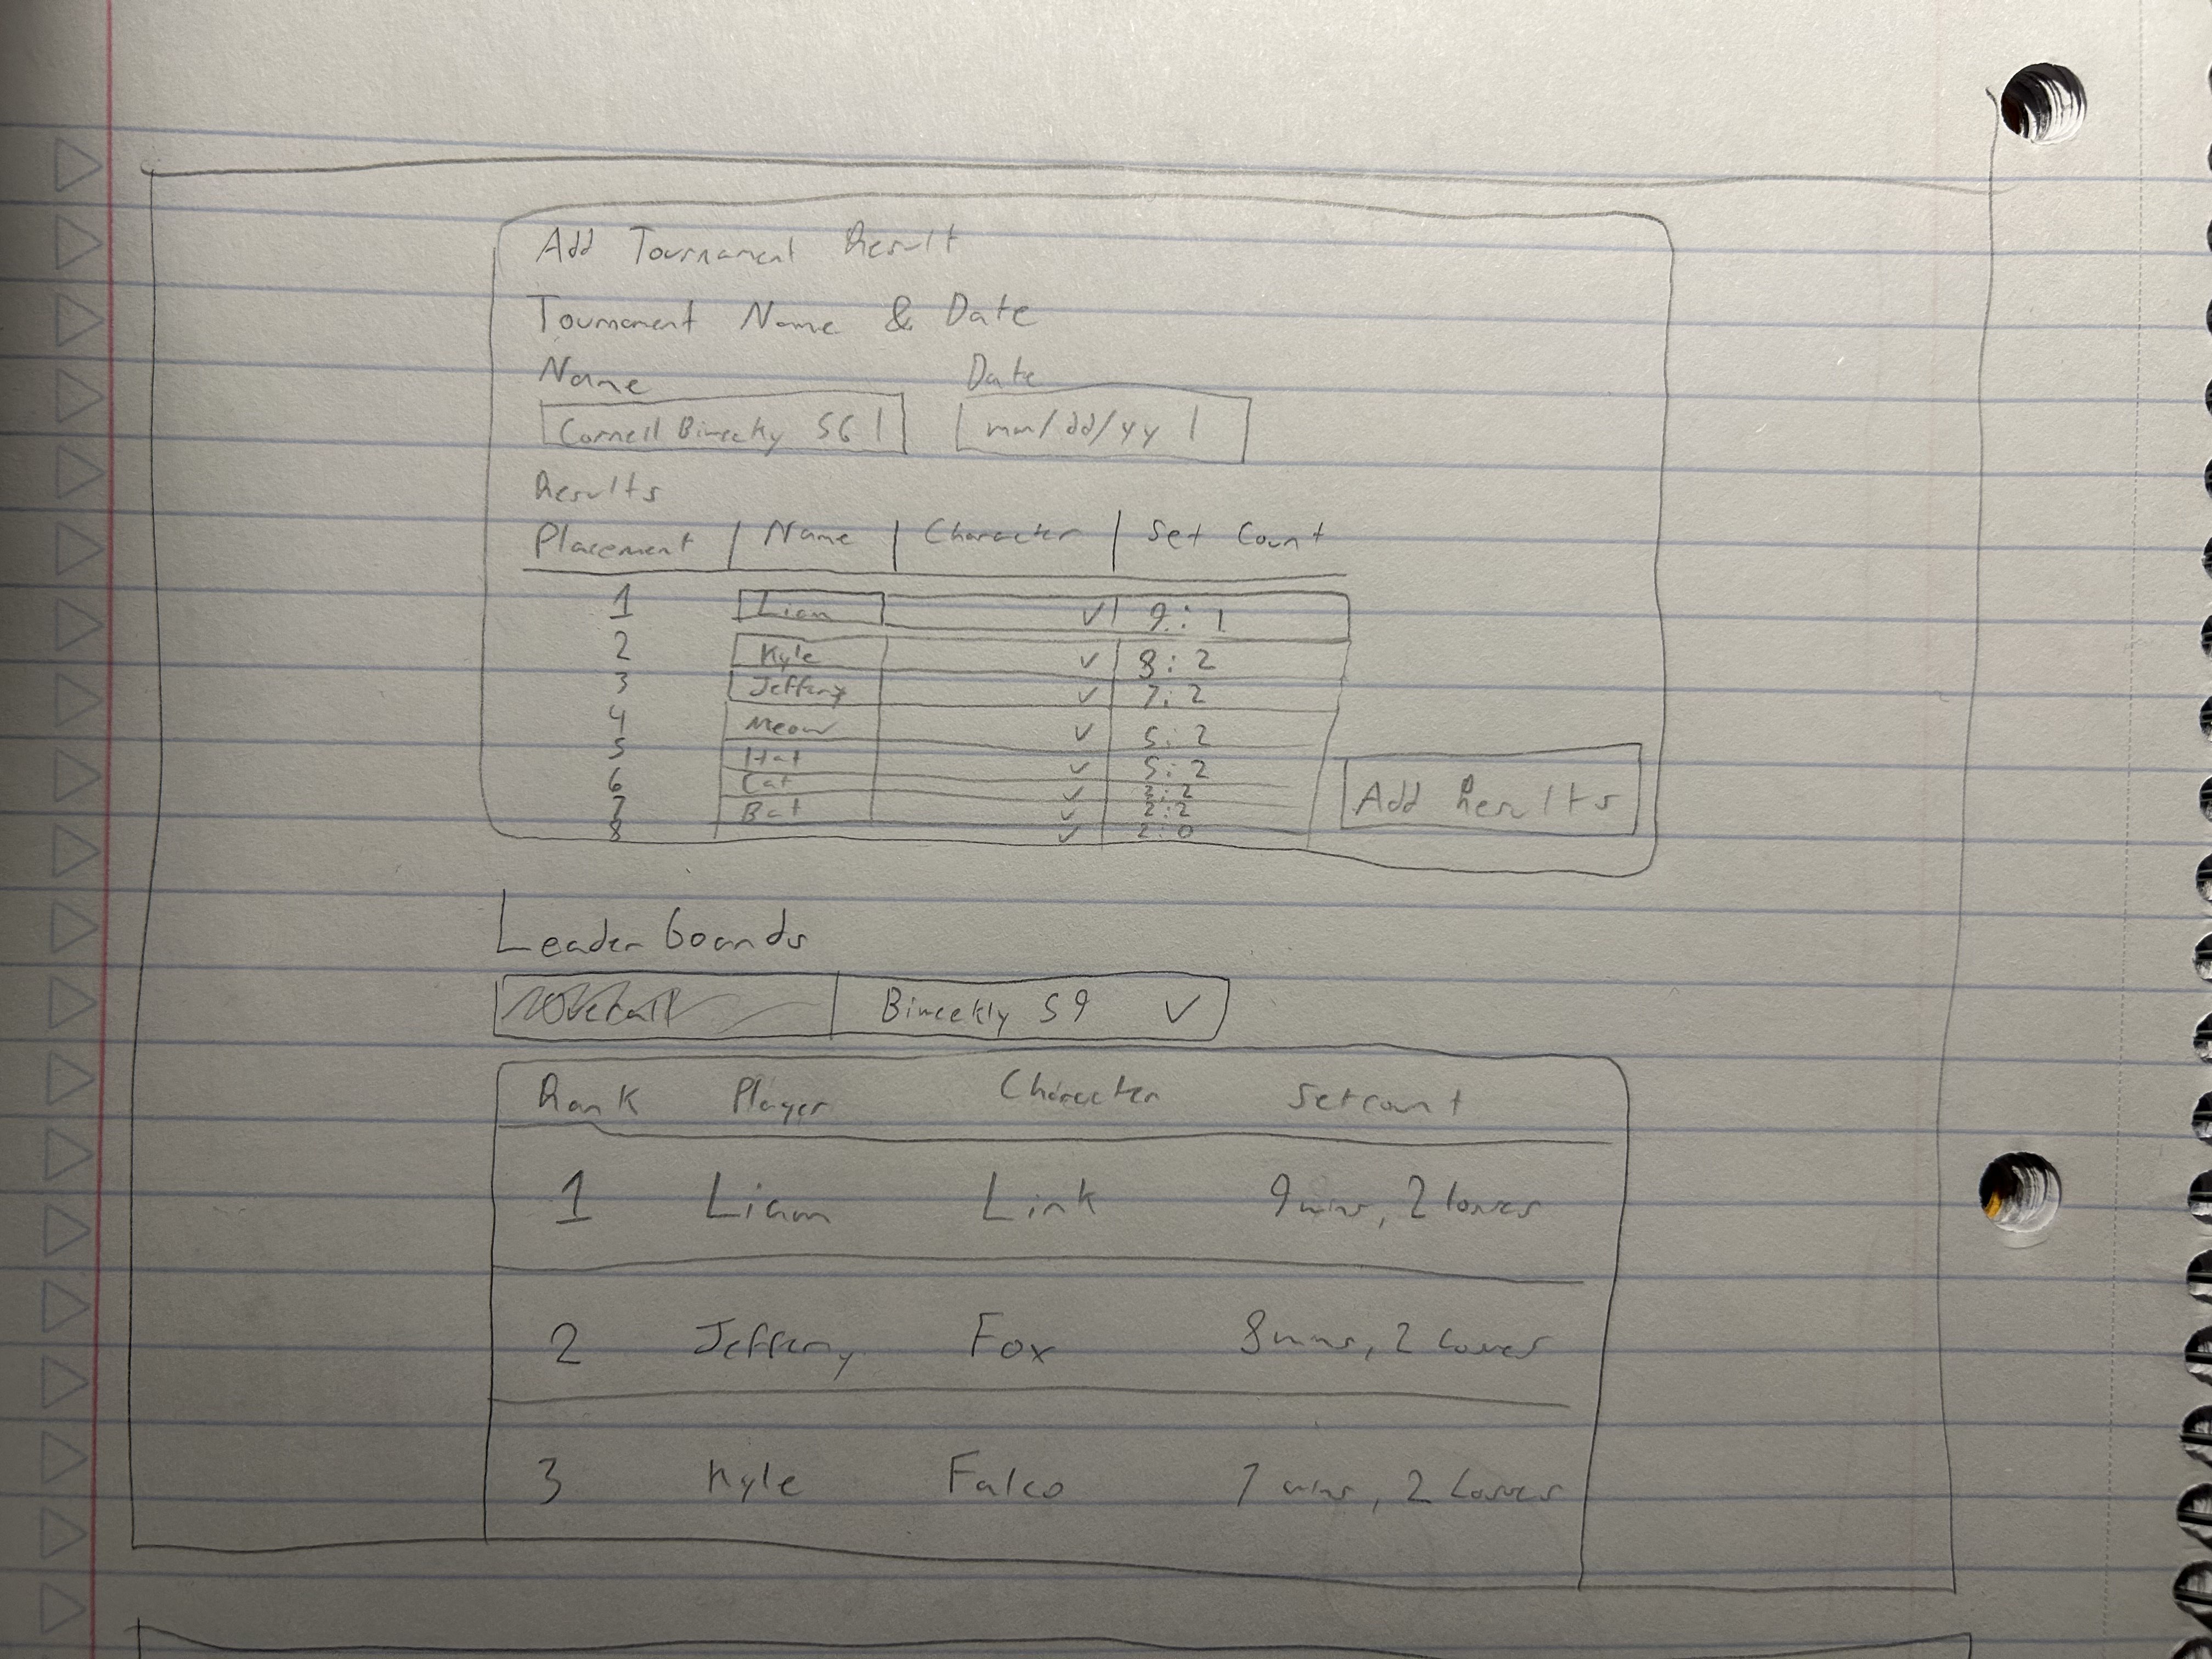 Add Tournament Result
Tournament Name & Date
Name Date
Cornell Biweekly S6 | mm/dd/yy |
Results
Placement | Name | Character | Set Count
1 Liam 9 : 1
2 Kyle 8 : 2
3 Jeffery 7 : 2
4 Meow 5 : 2
5 Hat 5 : 2
6 Cat 2 : 2
7 Bat 2 : 2
8 2 : 0
Add Results
Leaderboards
Overall Biweekly S9
Rank Player Character Setcount
1 Liam Link 9 wins, 2 losses
2 Jeffery Fox 8 wins, 2 losses
3 Kyle Falco 7 wins, 2 losses